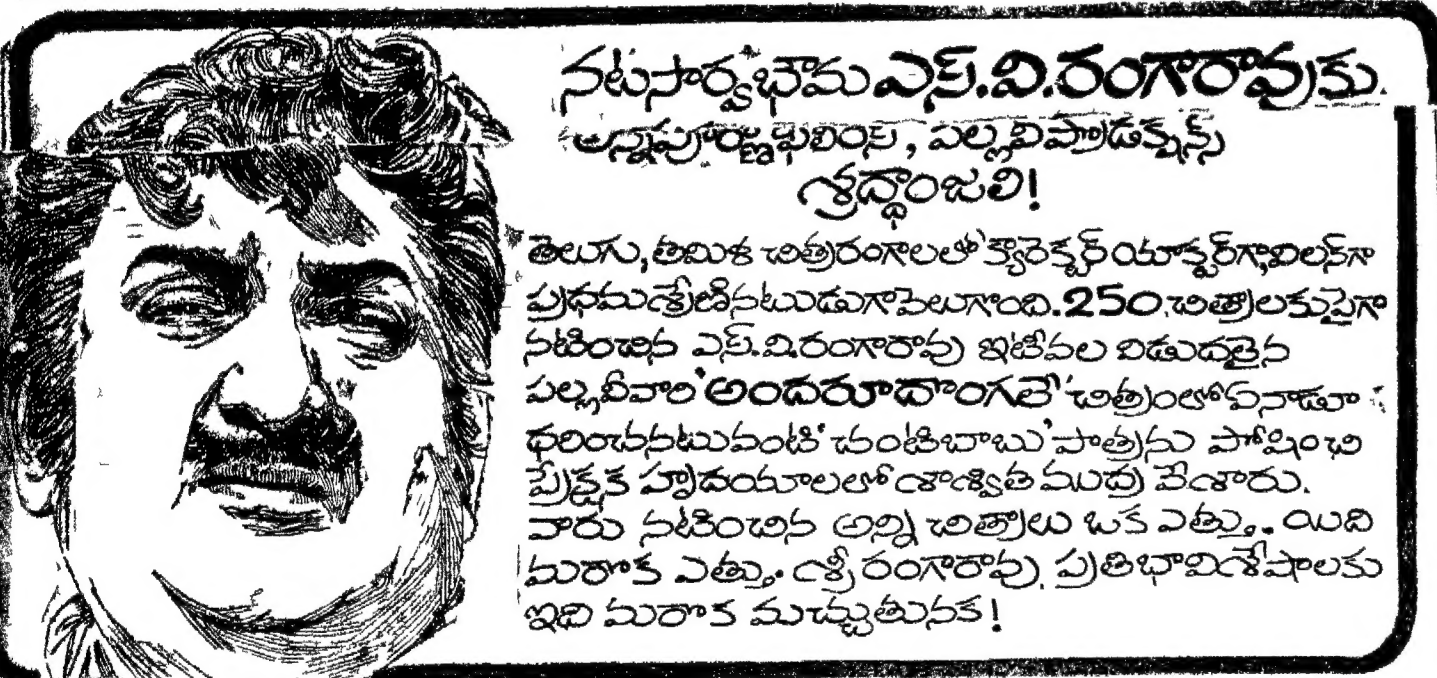 నటసార్వభౌమ ఎస్.వి.రంగారావుకు
అన్నపూర్ణ ఫిలింస్, పల్లవి ప్రొడక్షన్స్
శ్రద్ధాంజలి!
తెలుగు, తమిళ చిత్రరంగాలలో క్యారెక్టర్ యాక్టర్‌గా, విలన్‌గా
ప్రధమశ్రేణి నటుడుగా వెలుగొంది. 250 చిత్రాలకుపైగా
నటించిన ఎస్.వి.రంగారావు ఇటీవల విడుదలైన
పల్లవీవారి 'అందరూ దొంగలే' చిత్రంలో ఏనాడూ
ధరించనటువంటి 'చంటిబాబు' పాత్రను పోషించి
ప్రేక్షక హృదయాలలో శాశ్విత ముద్ర వేశారు.
వారు నటించిన అన్ని చిత్రాలు ఒక ఎత్తు. యిది
మరొక ఎత్తు. శ్రీ రంగారావు ప్రతిభావిశేషాలకు
ఇది మరొక మచ్చుతునక!